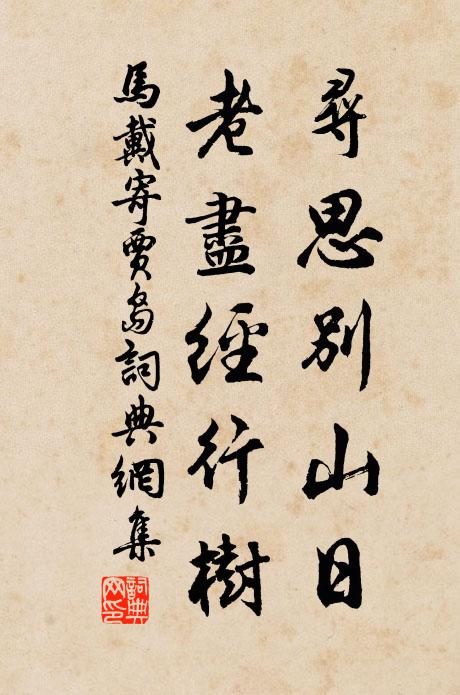 尋思别山日
老盡經行樹
馬戴寄賈島詞典網集
詞典網印